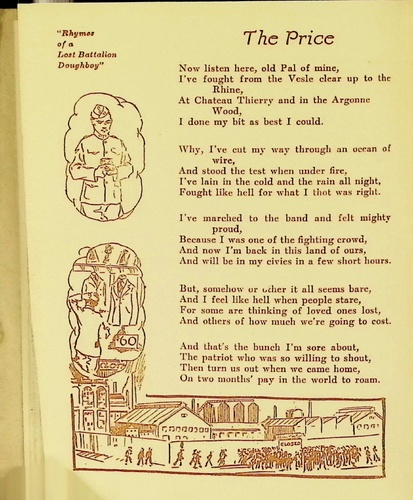 "Rhymes
of a
Lost Battalion
Doughboy"
The Price
Now listen here, old Pal of mine,
I've fought from the Vesle clear up to the
Rhine,
At Chateau Thierry and in the Argonne
Wood,
I done my bit as best I could.
Why, I've cut my way through an ocean of
wire,
And stood the test when under fire,
I've lain in the cold and the rain all night,
Fought like hell for what I thot was right.
I've marched to the band and felt mighty
proud,
Because I was one of the fighting crowd,
And now I'm back in this land of ours,
And will be in my civies in a few short hours.
But, somehow or other it all seems bare,
And I feel like hell when people stare,
For some are thinking of loved ones lost,
And others of how much we're going to cost.
And that's the bunch I'm sore about,
The patriot who was so willing to shout,
Then turn us out when we came home,
On two months' pay in the world to roam.
60
CLOSED